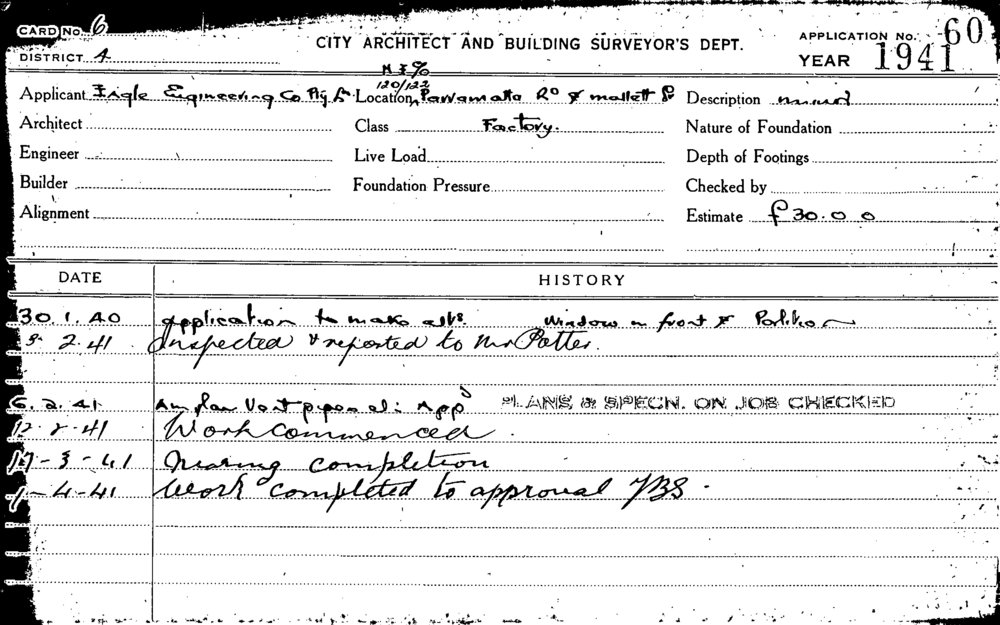 CARD No. 6
CITY ARCHITECT AND BUILDING SURVEYOR'S DEPT.
APPLICATION No. 60
DISTRICT 4
YEAR 1941
120/122
Applicant Eagle Engineering Co Pty Ld Location Parramatta Rd & mallett St Description minor
Architect Class Factory. Nature of Foundation
Engineer Live Load Depth of Footings
Builder Foundation Pressure Checked by
Alignment Estimate £30.0 0
DATE HISTORY
30.1.40 application to make alts. Window in front & Partition
2.41 Inspected & reported to Mr Potter.
6.2.41 App'd PLANS & SPECN. ON JOB CHECKED
12-2-41 Work commenced.
17-3-41 Nearing completion
1-4-41 Work completed to approval